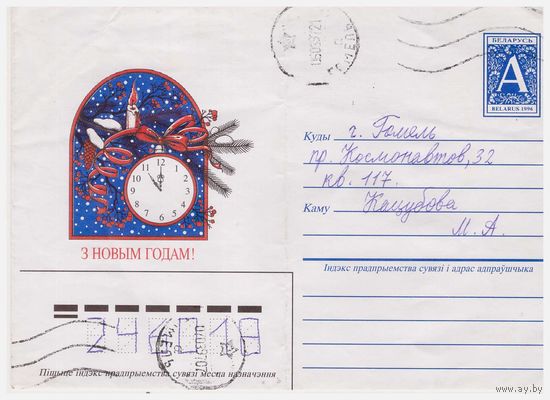 БЕЛАРУСЬ
А
BELARUS 1996
ГОМЕЛЬ
Куды г. Гомель
пр. Космонавтов, 32
кв. 117.
Каму Кацубова
М. А.
З НОВЫМ ГОДАМ!
Індэкс прадпрыемства сувязі і адрас адпраўшчыка
246019
Пішыце індэкс прадпрыемства сувязі месца назначэння
www.ay.by